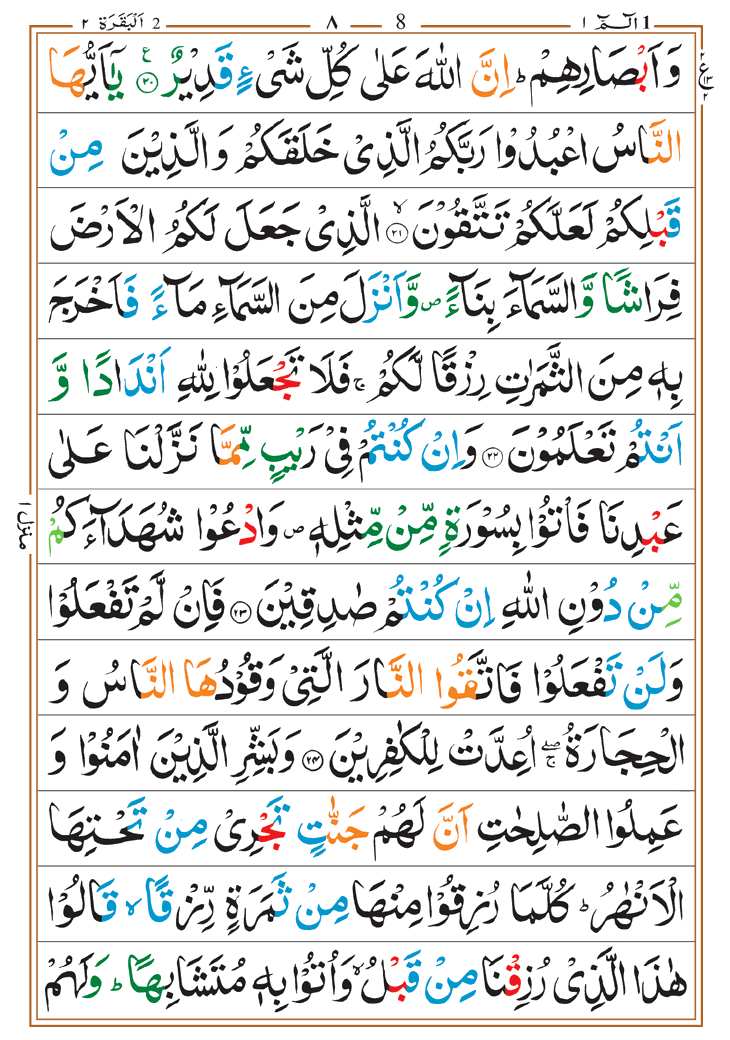 2 اَلۡبَقَرَة ٢ ٨ 8 1 الٓمّٓ ١
وَاَبۡصَارِهِمۡؕ اِنَّ اللّٰهَ عَلٰى كُلِّ شَىۡءٍ قَدِيۡرٌ ۟﴿۲۰﴾ يٰۤاَيُّهَا
النَّاسُ اعۡبُدُوۡا رَبَّكُمُ الَّذِىۡ خَلَقَكُمۡ وَالَّذِيۡنَ مِنۡ
قَبۡلِكُمۡ لَعَلَّكُمۡ تَتَّقُوۡنَ ۙ‏﴿۲۱﴾ الَّذِىۡ جَعَلَ لَكُمُ الۡاَرۡضَ
فِرَاشًا وَّالسَّمَآءَ بِنَآءً ص وَّاَنۡزَلَ مِنَ السَّمَآءِ مَآءً فَاَخۡرَجَ
بِهٖ مِنَ الثَّمَرٰتِ رِزۡقًا لَّكُمۡ‌ۚ فَلَا تَجۡعَلُوۡا لِلّٰهِ اَنۡدَادًا وَّ
اَنۡتُمۡ تَعۡلَمُوۡنَ ﴿۲۲﴾ وَاِنۡ كُنۡتُمۡ فِىۡ رَيۡبٍ مِّمَّا نَزَّلۡنَا عَلٰى
عَبۡدِنَا فَاۡتُوۡا بِسُوۡرَةٍ مِّنۡ مِّثۡلِهٖ ص وَادۡعُوۡا شُهَدَآءَكُمۡ
مِّنۡ دُوۡنِ اللّٰهِ اِنۡ كُنۡتُمۡ صٰدِقِيۡنَ ﴿۲۳﴾ فَاِنۡ لَّمۡ تَفۡعَلُوۡا
وَلَنۡ تَفۡعَلُوۡا فَاتَّقُوا النَّارَ الَّتِىۡ وَقُوۡدُهَا النَّاسُ وَ
الۡحِجَارَةُ ۖۚ اُعِدَّتۡ لِلۡكٰفِرِيۡنَ ﴿۲۴﴾ وَبَشِّرِ الَّذِيۡنَ اٰمَنُوۡا وَ
عَمِلُوا الصّٰلِحٰتِ اَنَّ لَهُمۡ جَنّٰتٍ تَجۡرِىۡ مِنۡ تَحۡتِهَا
الۡاَنۡهٰرُ‌ؕ كُلَّمَا رُزِقُوۡا مِنۡهَا مِنۡ ثَمَرَةٍ رِّزۡقًا ۙ قَالُوۡا
هٰذَا الَّذِىۡ رُزِقۡنَا مِنۡ قَبۡلُ ۙ وَاُتُوۡا بِهٖ مُتَشَابِهًا‌ؕ وَلَهُمۡ
منزل ۱